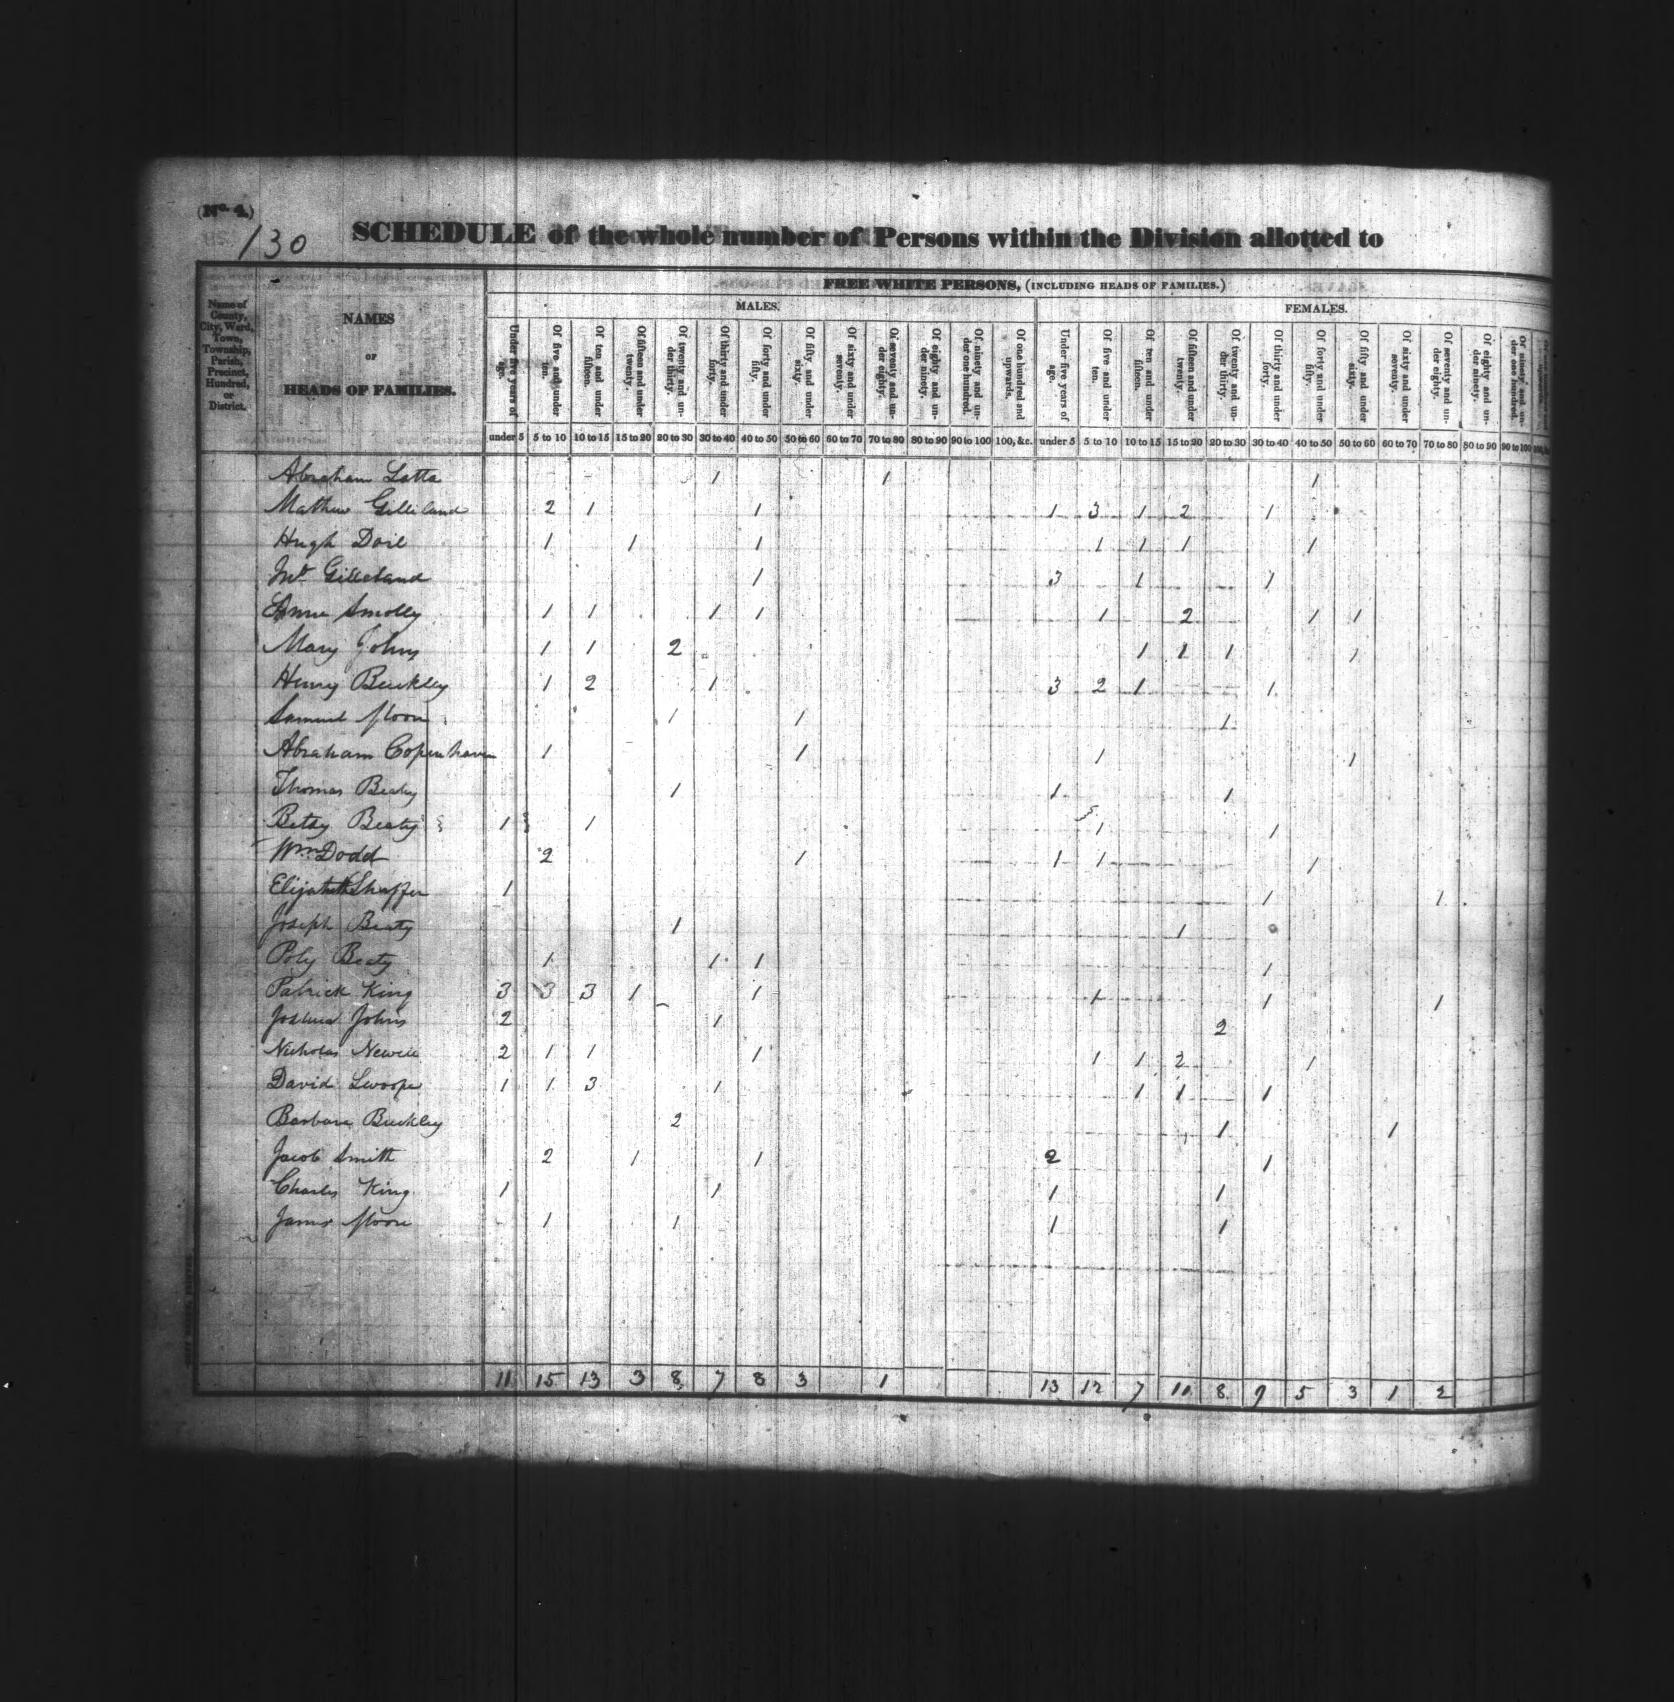 (No. 4.)
130
SCHEDULE of the whole number of Persons within the Division allotted to
FREE WHITE PERSONS, (INCLUDING HEADS OF FAMILIES.)
MALES.
FEMALES.
Name of County, City, Ward, Town, Township, Parish, Precinct, Hundred, or District.
NAMES
OF
HEADS OF FAMILIES.
Under five years of age.
Of five and under ten.
Of ten and under fifteen.
Of fifteen and under twenty.
Of twenty and under thirty.
Of thirty and under forty.
Of forty and under fifty.
Of fifty and under sixty.
Of sixty and under seventy.
Of seventy and under eighty.
Of eighty and under ninety.
Of ninety and under one hundred.
Of one hundred and upwards.
Under five years of age.
Of five and under ten.
Of ten and under fifteen.
Of fifteen and under twenty.
Of twenty and under thirty.
Of thirty and under forty.
Of forty and under fifty.
Of fifty and under sixty.
Of sixty and under seventy.
Of seventy and under eighty.
Of eighty and under ninety.
Of ninety and under one hundred.
under 5 5 to 10 10 to 15 15 to 20 20 to 30 30 to 40 40 to 50 50 to 60 60 to 70 70 to 80 80 to 90 90 to 100 100, &c. under 5 5 to 10 10 to 15 15 to 20 20 to 30 30 to 40 40 to 50 50 to 60 60 to 70 70 to 80 80 to 90 90 to 100
Abraham Latta 1 1 1
Mathew Gilliland 2 1 1 1 3 1 2 1
Hugh Doil 1 1 1 1 1 1 1
Jno Gilleland 1 3 1 1
Smolly 1 1 1 1 1 2 1 1
Mary Johns 1 1 2 1 1 1 1
Henry Buckley 1 2 1 3 2 1 1
Samuel Moon 1 1 1
Abraham Copenhaven 1 1 1 1
Thomas Beaty 1 1 1
Betsy Beaty 1 1 1 1
Wm Dodd 2 1 1 1 1
Shaffer 1 1 1
Joseph Beaty 1 1
Poly Beaty 1 1 1 1
Patrick King 3 3 3 1 1 1 1 1
Joshua Johns 2 1 2
Nicholas Newell 2 1 1 1 1 1 2 1
David Swoope 1 1 3 1 1 1 1
Barbara Buckley 2 1 1
Jacob Smith 2 1 1 2 1
Charles King 1 1 1 1
James Moore 1 1 1 1
11 15 13 3 8 7 8 3 1 13 12 7 11 8 9 5 3 1 2